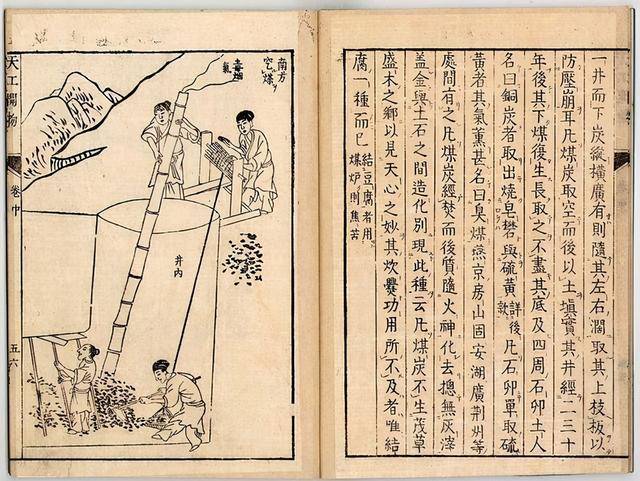 一井而下炭縱橫廣有則隨其左右濶取其上枝板以
防壓崩耳凡煤炭取空而後以土塡實其井經二三十
年後其下煤復生長取之不盡其底及四周石卵土人
名曰銅炭者取出燒皂礬與硫黃詳後款凡石卵單取硫
黃者其氣薰甚名曰臭煤燕京房山固安湖廣荊州等
處間有之凡煤炭經焚而後質隨火神化去摠無灰滓
蓋金與土石之間造化別現此種云凡煤炭不生茂草
盛木之鄉以見天心之妙其炊爨功用所不及者唯結
腐一種而已結豆腐者用煤炉則焦苦
南方
空煤
毒烟
氣
井內
天工開物
卷中
五六